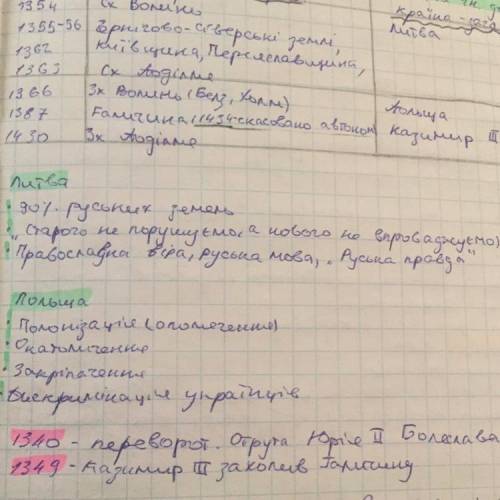 1354 Сх Волинь
країна
1355-56 Чернігово-Сіверські землі, Литва
1362 Київщина, Переяславщина,
1363 Сх Поділля
1366 Зх Волинь (Белз, Холм)
1387 Галичина (1434-скасовано автоном) Польща Казимир III
1430 Зх Поділля
Литва
• 90% руських земель
• "Старого не порушуємо, а нового не впроваджуємо)
• Православна віра, руська мова, "Руська правда"
Польща
• Полонізація (ополячення)
• Окатоличення
• Закріпачення
• Дискримінація українців
1340 - переворот. Отрута Юрія II Болеслава
1349 - Казимир III захопив Галичину